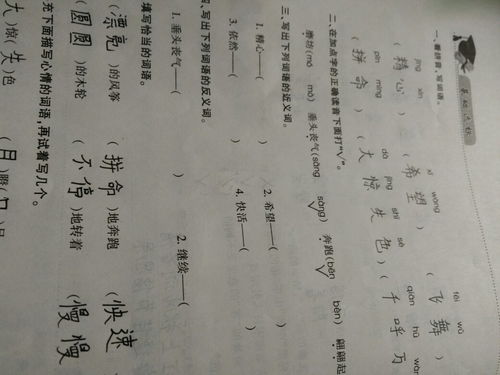 基础达标
一、看拼音,写词语。
jīng xīn xī wàng fēi wǔ
(精心) (希望) (飞舞)
pīn mìng dà jīng shī sè qiān hū wàn
(拼命) (大惊失色) (千呼万
二、在加点字的正确读音下面打“√”。
磨坊(mó mò) 垂头丧气(sāng sàng) 奔跑(bēn bèn) 翩翩起
√ √
三、写出下列词语的近义词。
1. 精心——( ) 2. 希望——( )
3. 依然——( ) 4. 快活——( )
四、写出下列词语的反义词。
1. 垂头丧气——( ) 2. 继续——( )
填写恰当的词语。
(漂亮)的风筝 (拼命)地奔跑 (快速
(圆圆)的木轮 (不停)地转着 (慢慢
充下面描写心情的词语,再试着写几个。
大)惊(失)色 (目)瞪(口)呆